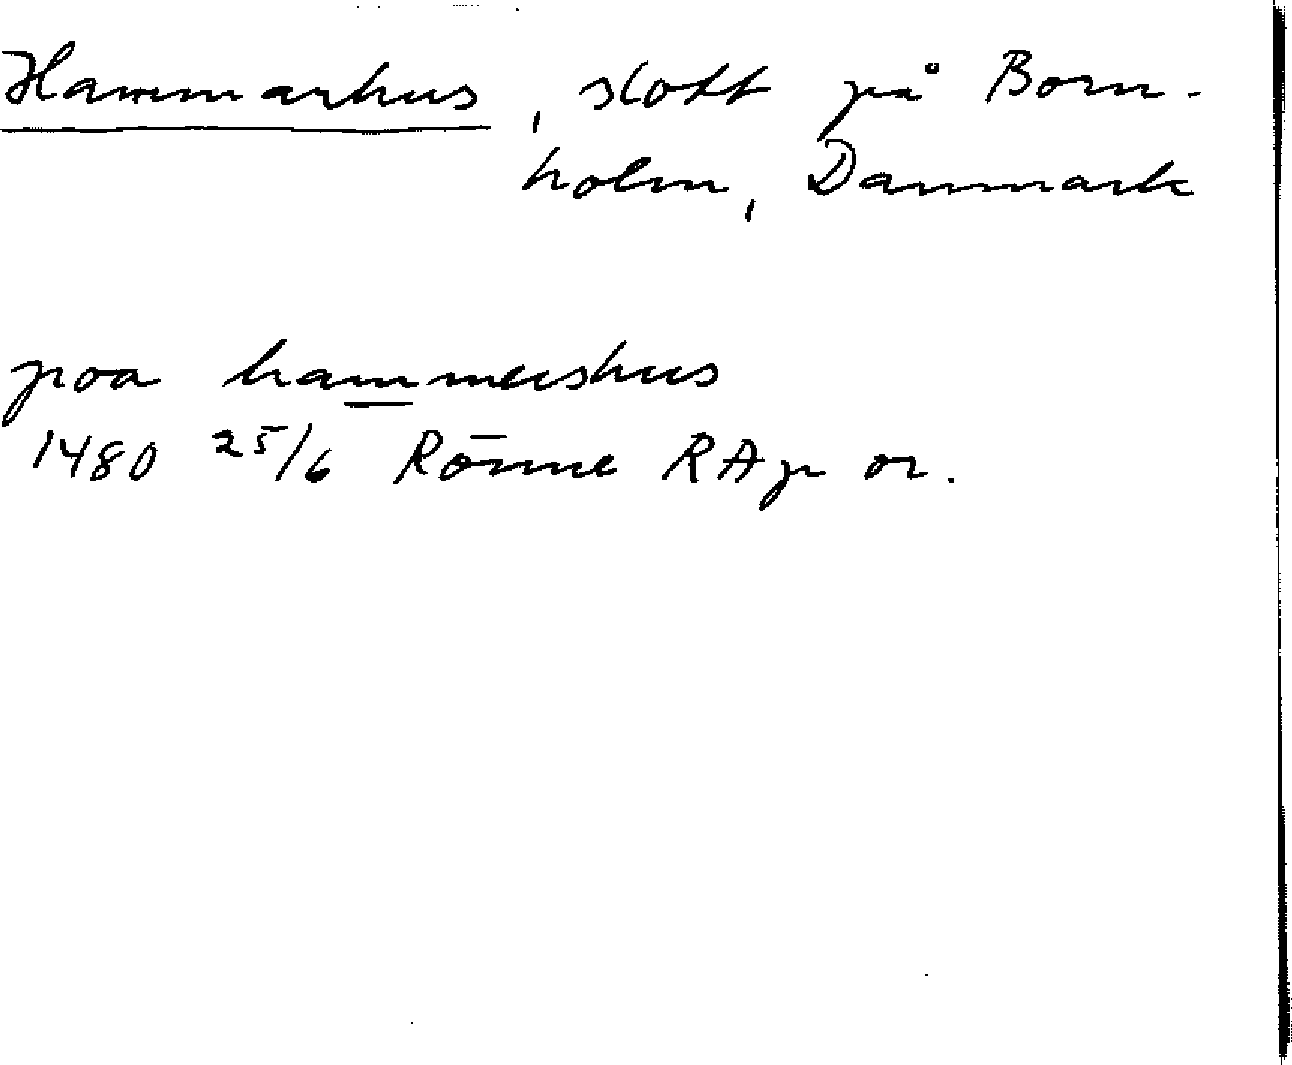 Hammarhus, slott på Born-
holm, Danmark
poa hammershus
1480 25/6 Rönne RAp or.